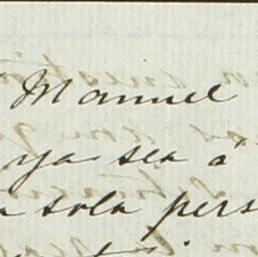 Manuel
ya sea á
sola pers